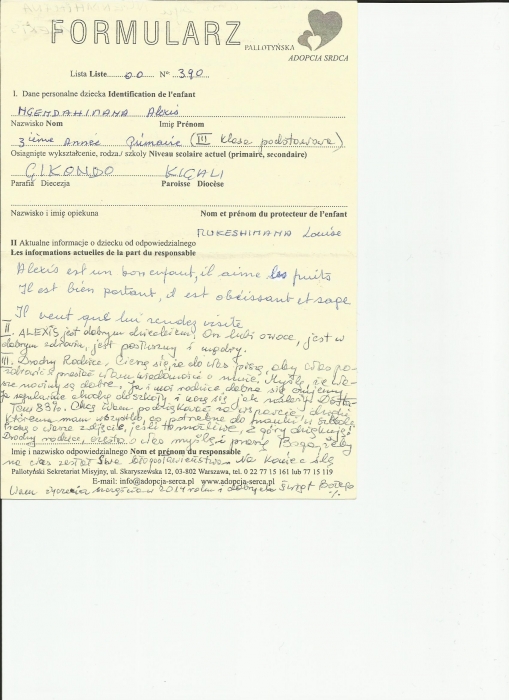 FORMULARZ
PALLOTYŃSKA
ADOPCJA SRDCA
Lista Liste 00 N° 390
I. Dane personalne dziecka Identification de l'enfant
NGENDAHIMANA Alexis
Nazwisko Nom Imię Prénom
3ième Année Primaire (III klasa podstawowa)
Osiągnięte wykształcenie, rodza./ szkoły Niveau scolaire actuel (primaire, secondaire)
GIKONDO KIGALI
Parafia Diecezja Paroisse Diocèse
Nazwisko i imię opiekuna Nom et prénom du protecteur de l'enfant
RUKESHIMANA Louise
II Aktualne informacje o dziecku od odpowiedzialnego
Les informations actuelles de la part du responsable
Alexis est un bon enfant, il aime les fruits
Il est bien portant, il est obéissant et sage
Il veut que lui rendez visite
II. ALEXIS jest dobrym dzieckiem. On lubi owoce, jest w
dobrym zdrowiu, jest posłuszny i mądry.
III. Drodzy Rodzice, Cieszę się, że do was piszę, aby was po-
zdrowić i przesłać wam wiadomości o mnie. Myślę, że wa-
sze nowiny są dobre. Ja i moi rodzice dobrze się czujemy.
Ja regularnie chodzę do szkoły i uczę się jak należy.
83%. Chcę wam podziękować za wsparcie, dzięki
któremu mam wszystko, co potrzebne do nauki w szkole.
Proszę o wasze zdjęcie, jeżeli to możliwe, z góry dziękuję.
Drodzy rodzice, często o was myślę i proszę Boga, żeby
Imię i nazwisko odpowiedzialnego Nom et prénom du responsable
na was zesłał swe błogosławieństwo. Na koniec ślę
Pallotyński Sekretariat Misyjny, ul. Skaryszewska 12, 03-802 Warszawa, tel. 0 22 77 15 161 lub 77 15 119
E-mail: info@adopcja-serca.pl www.adopcja-serca.pl
Wam życzenia szczęścia w 2014 roku i dobrych Świąt Bożego